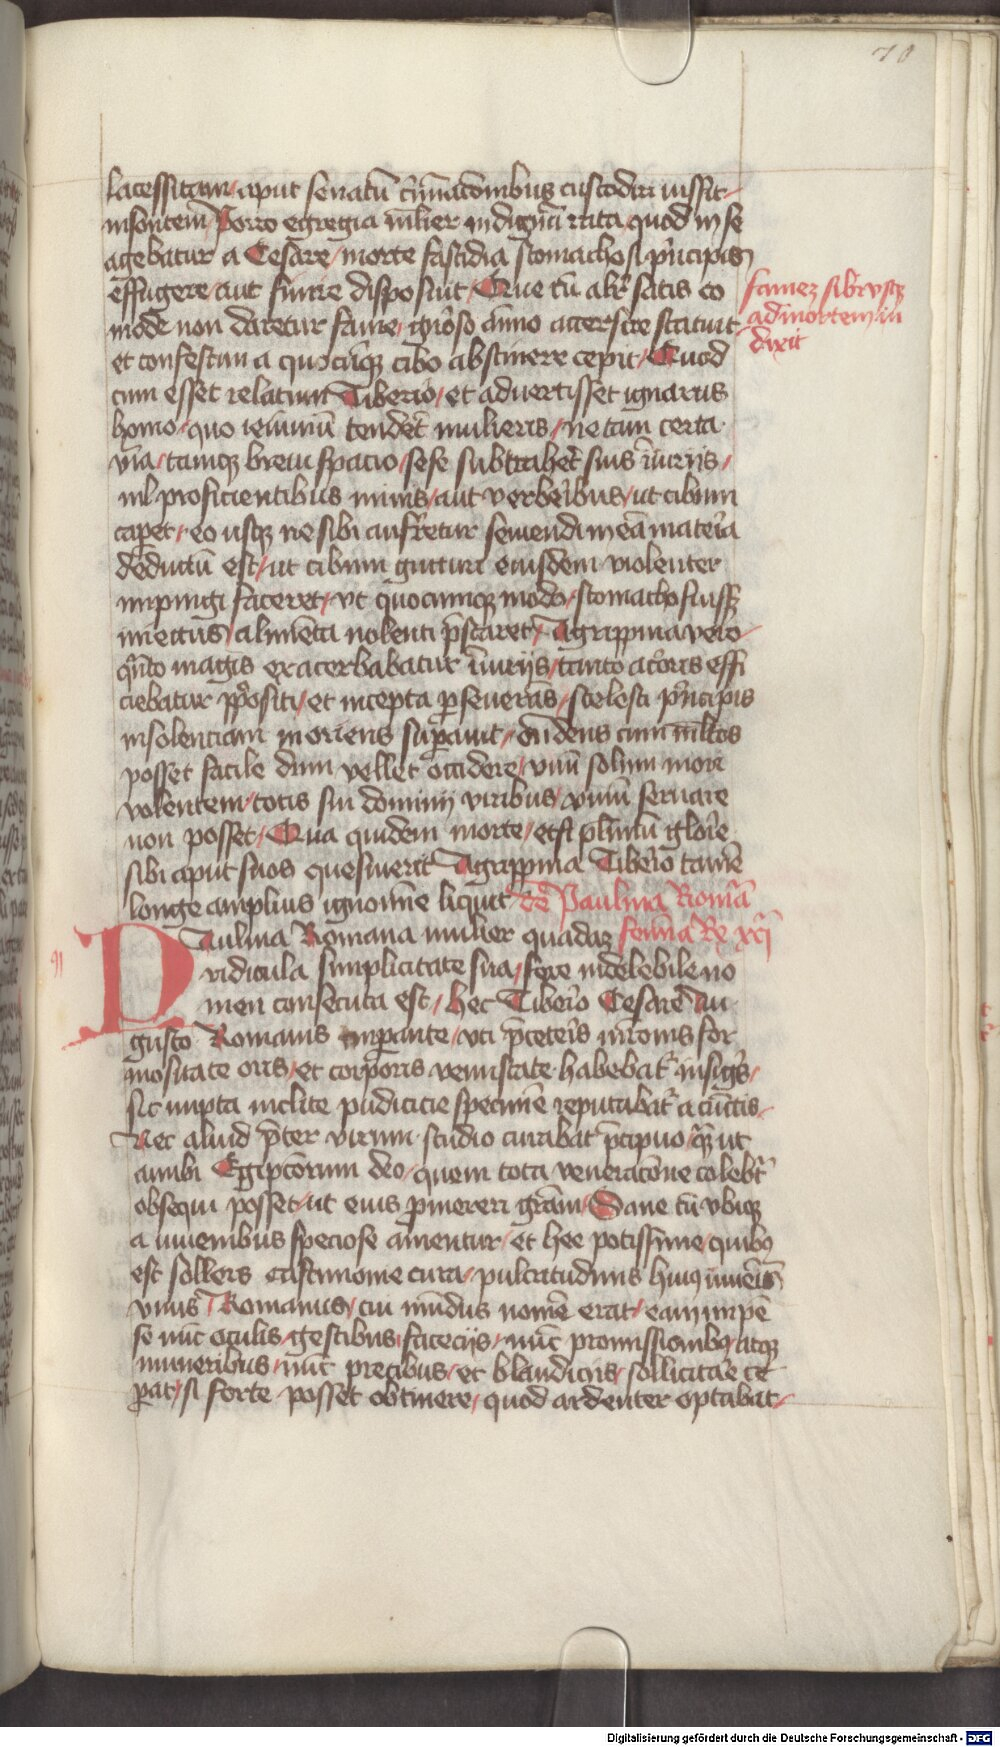 70
lacessitam / aput senatū cͥmīacōnibus custodiri iussit /
insontem Porro egregia ml̄ier indignū rata quod in se
agebatur a Cesare / morte fastidia stomachosi pͥncipis
effugere / aut finire disposuit / Que cū abr̄ satis co
mode non daretur fame / gn̄oso aīmo accersire statuit
famez sibi vsqꝫ
ad mortem in
dixit
et confestim a quocūqꝫ cibo abstinere cepit / Quod
cum esset relatum Tiberio / et advertisset ignarus
homo / quo ieiuniū tendēt mulieris / ne tam certa
via / tamqꝫ breui spacio / sese subtrahēt suis īiurijs /
nl̄ proficientibus minis / aut verberibus / ut cibum
caꝑet / eo usqꝫ ne sibi aufr̄etur seuiendi in eā materia
deductū est / ut cibum gutturi eiusdem violenter
impingi faceret / vt quocumqꝫ modo / stomacho fuissꝫ
iniectus / alimēta nolenti p̄staret / Agrippina vero /
qn̄to magis exacerbabatur īiurijs / tanto acōris effi
ciebatur ꝓpositi / et incepta ꝑseuerās / scelesti pͥncipis
insolentiam moriens suꝑauit / on̄dens cum ml̄tos
posset facile dum vellet occidere / vnū solum mori
volentem / totis sui dominij viribus / vnum seruare
non posset / Qua quidem morte / etsi pl̄imū glorie
sibi aput suos quesiuerit Agrippina Tiberio tamē
longe amplius ignominie liquit de Paulina Romāa
Paulina Romana mulier quadaꝫ femīa Re xci
91
ridicula simplicitate sua / fere indelebile no
men consecuta est / hec Tiberio Cesare Au
gusto Romanis imꝑante / uti p̄ceteris mr̄onis for
mositate oris / et corporis venustate habebatͬ insigis /
sic nupta inclite pudicicie specimē reputabatͬ a cūctis /
Nec aliud p̄ter virum studio curabat p̄cipuo / qͣꝫ ut
anubi Egipciorum deo / quem tota veneracōne colebatͬ
obsequi posset / ut eius ꝓmereri grām / Sane cū vbiqꝫ
a iuuenibus speciose amentur / et hee potissime / quibꝰ
est sollers castimonie cura / pulcritudinis huiꝰ iuuēis
vnus Romanus / cui mūdus nomē erat / eam impē
se nūc oculis / gestibus / facecijs / nūc promissionibꝰ atqꝫ
muneribus / nūc precibus / et blandicijs / sollicitare ce
ꝑat / si forte posset obtinere / quod ardenter optabat /
Digitalisierung gefördert durch die Deutsche Forschungsgemeinschaft - DFG